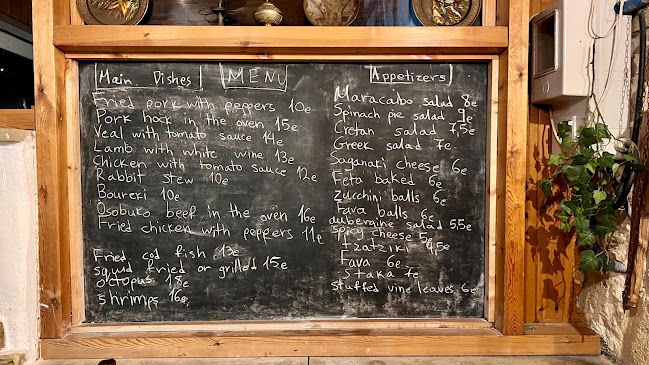 Main Dishes
MENU
Fried pork with peppers 10e
Pork hock in the oven 15e
Veal with tomato sauce 14e
Lamb with white wine 13e
Chicken with tomato sauce 12e
Rabbit stew 10e
Boureki 10e
Osobuko beef in the oven 16e
Fried chicken with peppers 11e
Fried cod fish 13e
squid fried or grilled 15e
octopus 18e
shrimps 16e
Appetizers
Maracaibo salad 8e
Spinach pie salad 9e
Cretan salad 7,5e
Greek salad 7e
Saganaki cheese 6e
Feta baked 6e
Zucchini balls 6e
Fava balls 6e
aubergine salad 5,5e
spicy cheese 5e
Tzatziki 4,5e
Fava 6e
Staka 7e
stuffed vine leaves 6e